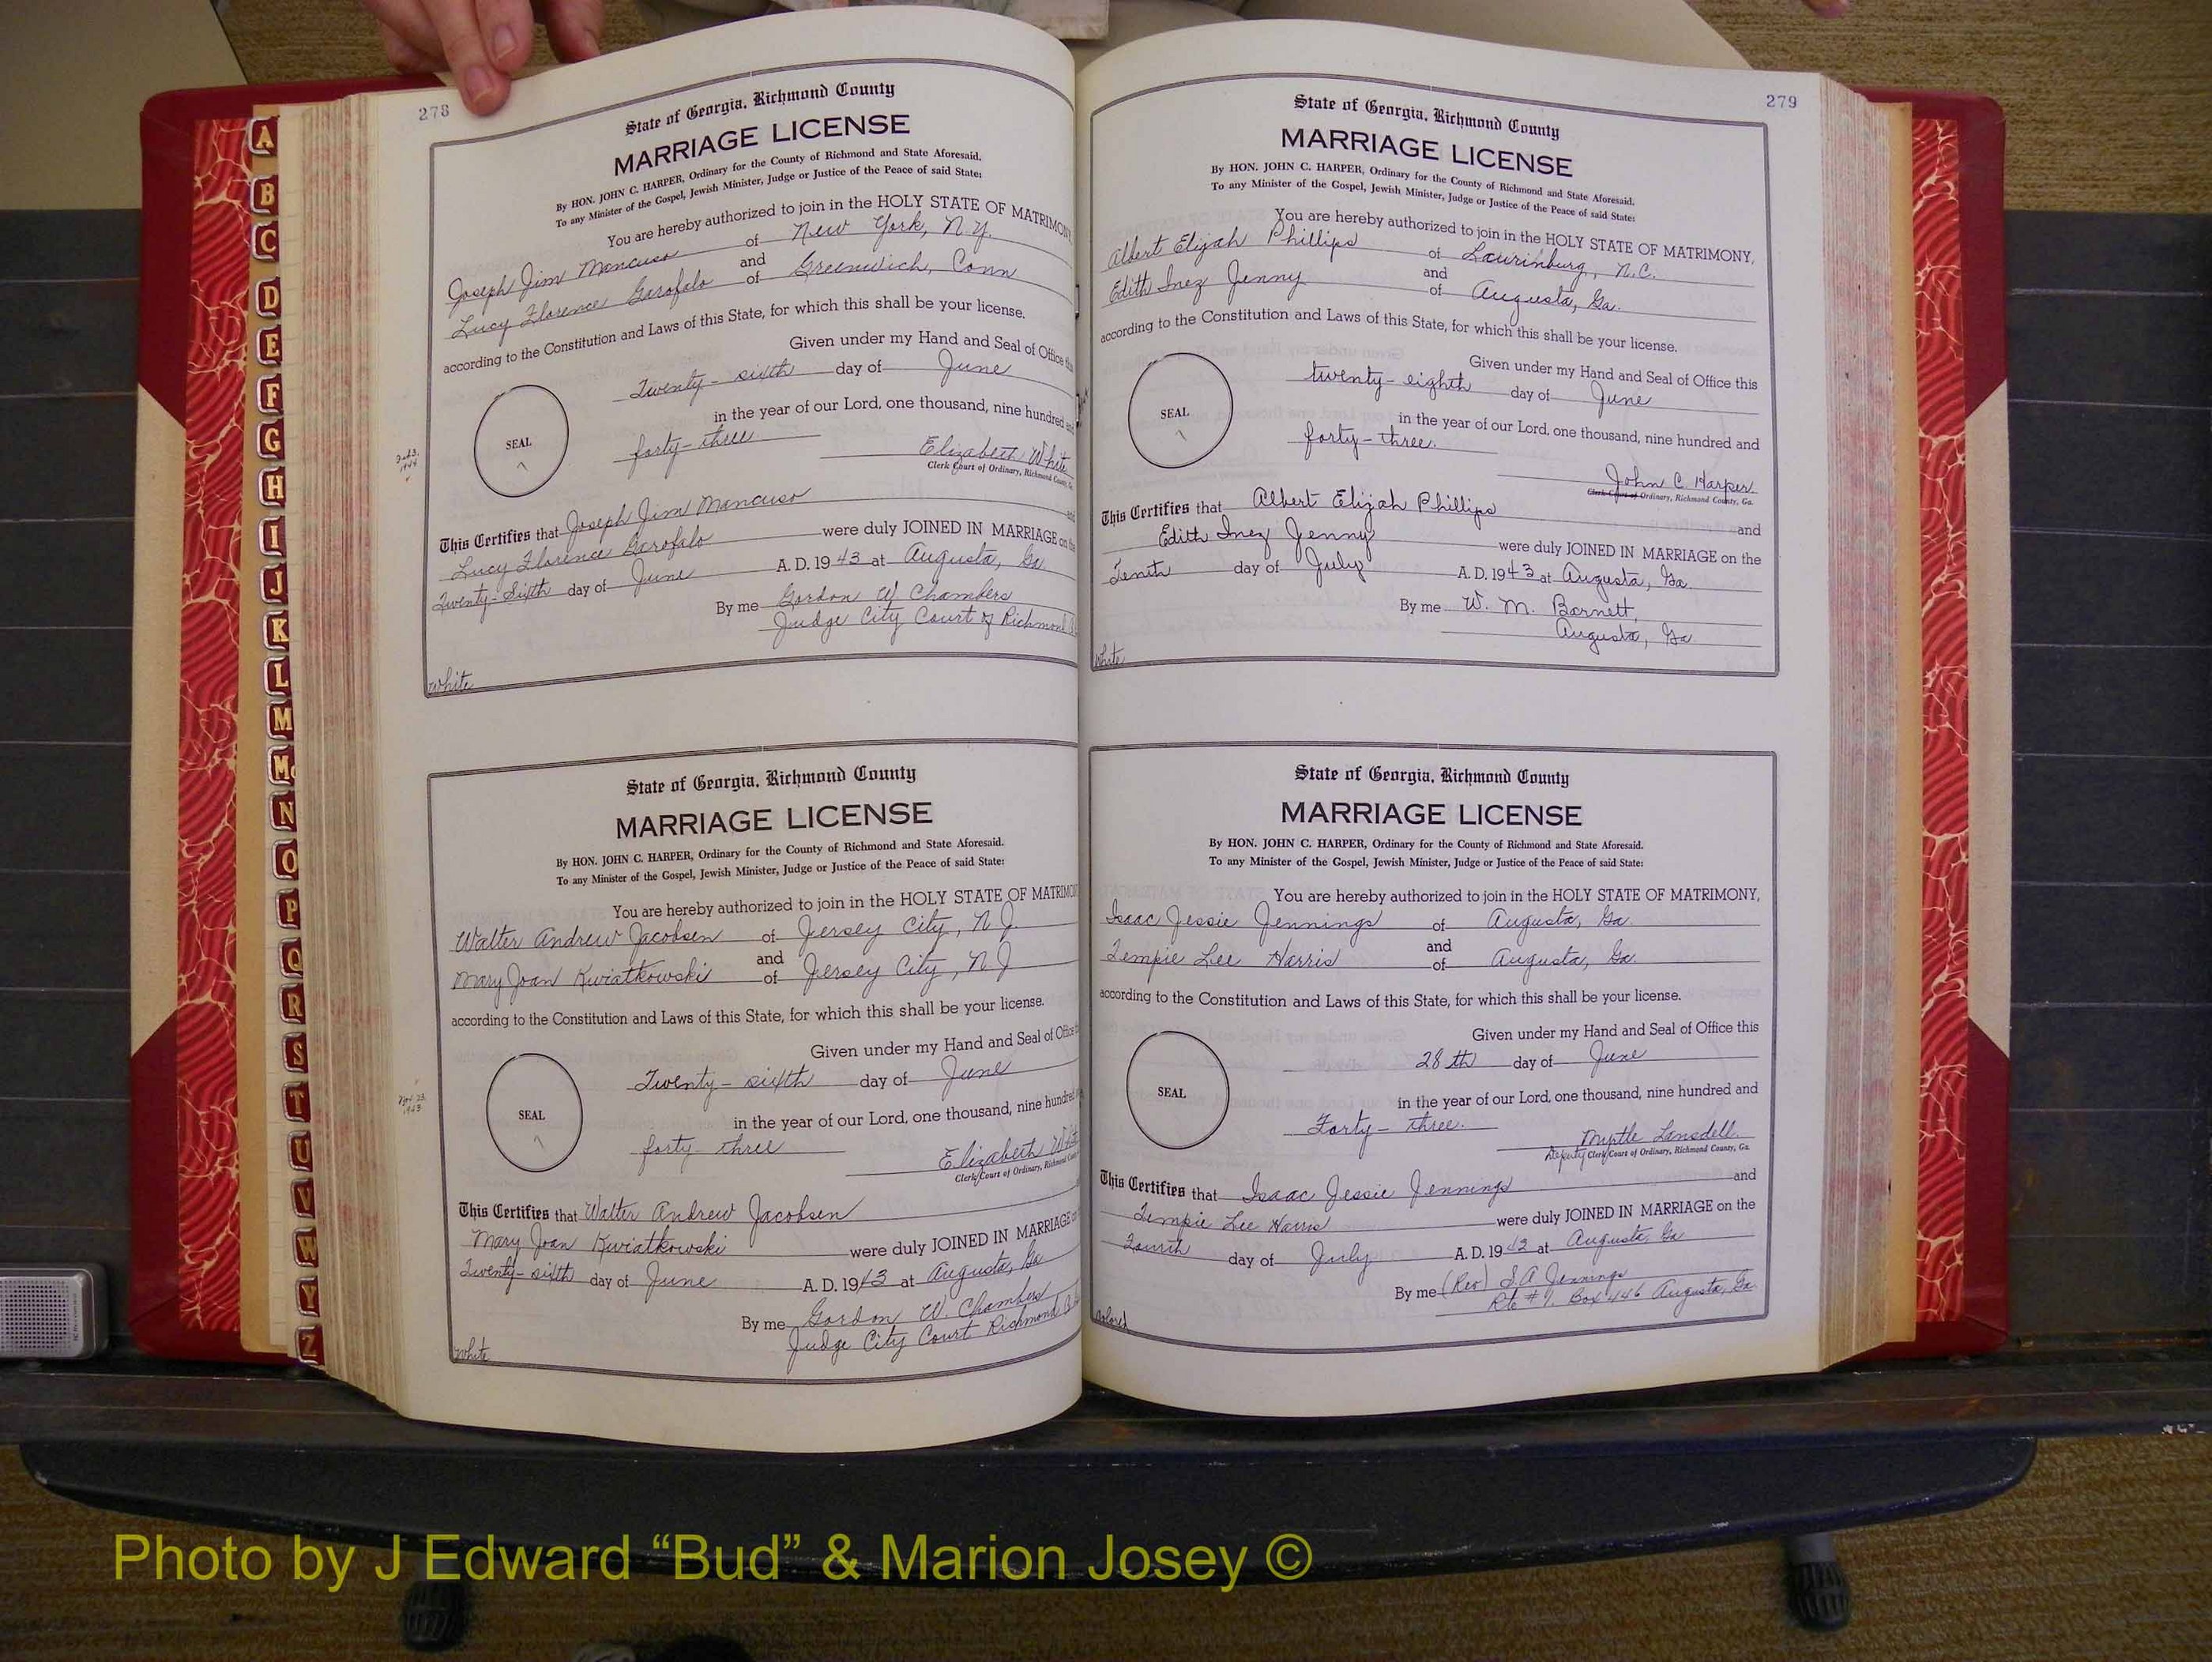 278
State of Georgia, Richmond County
MARRIAGE LICENSE
By HON. JOHN C. HARPER, Ordinary for the County of Richmond and State Aforesaid.
To any Minister of the Gospel, Jewish Minister, Judge or Justice of the Peace of said State:
You are hereby authorized to join in the HOLY STATE OF MATRIMONY,
Joseph Jim Mancuso of New York, N.Y.
and
Lucy Florence Garofalo of Greenwich, Conn
according to the Constitution and Laws of this State, for which this shall be your license.
Given under my Hand and Seal of Office this
Twenty-sixth day of June
in the year of our Lord, one thousand, nine hundred and
SEAL
forty-three.
Elizabeth White
Clerk Court of Ordinary, Richmond County, Ga.
1944
This Certifies that Joseph Jim Mancuso and
Lucy Florence Garofalo were duly JOINED IN MARRIAGE on the
Twenty-Sixth day of June A. D. 1943 at Augusta, Ga
By me Gordon W. Chambers
Judge City Court of Richmond
White
State of Georgia, Richmond County
MARRIAGE LICENSE
By HON. JOHN C. HARPER, Ordinary for the County of Richmond and State Aforesaid.
To any Minister of the Gospel, Jewish Minister, Judge or Justice of the Peace of said State:
You are hereby authorized to join in the HOLY STATE OF MATRIMO
Walter Andrew Jacobsen of Jersey City, N J
and
Mary Joan Kwiatkowski of Jersey City, N J
according to the Constitution and Laws of this State, for which this shall be your license.
Given under my Hand and Seal of Office th
Twenty-sixth day of June
in the year of our Lord, one thousand, nine hundred
SEAL
forty three
Elizabeth White
Clerk Court of Ordinary, Richmond Coun
1943
This Certifies that Walter Andrew Jacobsen
Mary Joan Kwiatkowski were duly JOINED IN MARRIAGE on
Twenty-sixth day of June A. D. 1943 at Augusta, Ga
By me Gordon W. Chambers
Judge City Court Richmond
White
279
State of Georgia, Richmond County
MARRIAGE LICENSE
By HON. JOHN C. HARPER, Ordinary for the County of Richmond and State Aforesaid.
To any Minister of the Gospel, Jewish Minister, Judge or Justice of the Peace of said State:
You are hereby authorized to join in the HOLY STATE OF MATRIMONY,
Albert Elijah Phillips of Laurinburg, N.C.
and
Edith Inez Jenny of Augusta, Ga.
according to the Constitution and Laws of this State, for which this shall be your license.
Given under my Hand and Seal of Office this
twenty-eighth day of June
in the year of our Lord, one thousand, nine hundred and
SEAL
forty-three.
John C Harper.
Clerk Court of Ordinary, Richmond County, Ga.
This Certifies that Albert Elijah Phillips and
Edith Inez Jenny were duly JOINED IN MARRIAGE on the
Tenth day of July A. D. 1943 at Augusta, Ga.
By me W. M. Barnett,
Augusta, Ga
White
State of Georgia, Richmond County
MARRIAGE LICENSE
By HON. JOHN C. HARPER, Ordinary for the County of Richmond and State Aforesaid.
To any Minister of the Gospel, Jewish Minister, Judge or Justice of the Peace of said State:
You are hereby authorized to join in the HOLY STATE OF MATRIMONY,
Isaac Jessie Jennings of Augusta, Ga.
and
Tempie Lee Harris of Augusta, Ga.
according to the Constitution and Laws of this State, for which this shall be your license.
Given under my Hand and Seal of Office this
28th day of June
in the year of our Lord, one thousand, nine hundred and
SEAL
Forty-three.
Myrtle Lansdell.
Deputy Clerk Court of Ordinary, Richmond County, Ga.
This Certifies that Isaac Jessie Jennings and
Tempie Lee Harris were duly JOINED IN MARRIAGE on the
Fourth day of July A. D. 1942 at Augusta Ga
By me (Rev) S. A Jennings
Rte #1. Box 446 Augusta, Ga
Colored
A
B
C
D
E
F
G
H
I
J
K
L
M
Mc
N
O
P
Q
R
S
T
U
V
W
Y
Z
Photo by J Edward “Bud” & Marion Josey ©